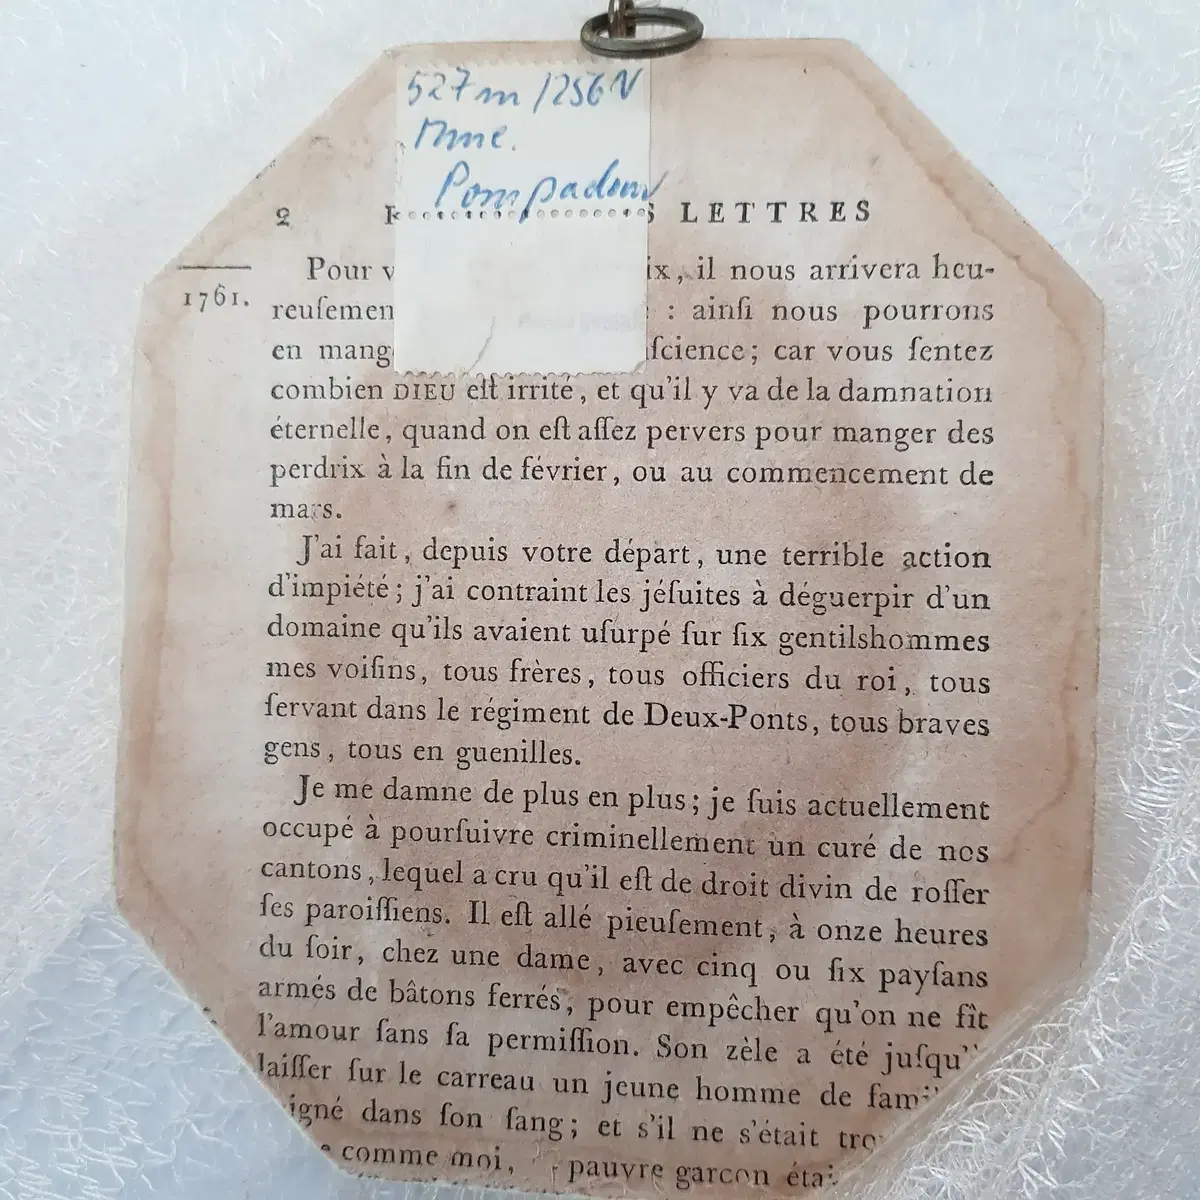 527m/1256N
Mme.
Pompadour
2 LETTRES
1761.
Pour il nous arrivera heu-
: ainſi nous pourrons
en ; car vous ſentez
combien DIEU eſt irrité, et qu'il y va de la damnation
éternelle, quand on eſt aſſez pervers pour manger des
perdrix à la fin de février, ou au commencement de
mars.
J'ai fait, depuis votre départ, une terrible action
d'impiété; j'ai contraint les jéſuites à déguerpir d'un
domaine qu'ils avaient uſurpé ſur ſix gentilshommes
mes voiſins, tous frères, tous officiers du roi, tous
ſervant dans le régiment de Deux-Ponts, tous braves
gens, tous en guenilles.
Je me damne de plus en plus; je ſuis actuellement
occupé à pourſuivre criminellement un curé de nos
cantons, lequel a cru qu'il eſt de droit divin de roſſer
ſes paroiſſiens. Il eſt allé pieuſement, à onze heures
du ſoir, chez une dame, avec cinq ou ſix payſans
armés de bâtons ferrés, pour empêcher qu'on ne fît
l'amour ſans ſa permiſſion. Son zèle a été juſqu'
laiſſer ſur le carreau un jeune homme de
dans ſon ſang; et s'il ne s'était
comme moi, pauvre garçon